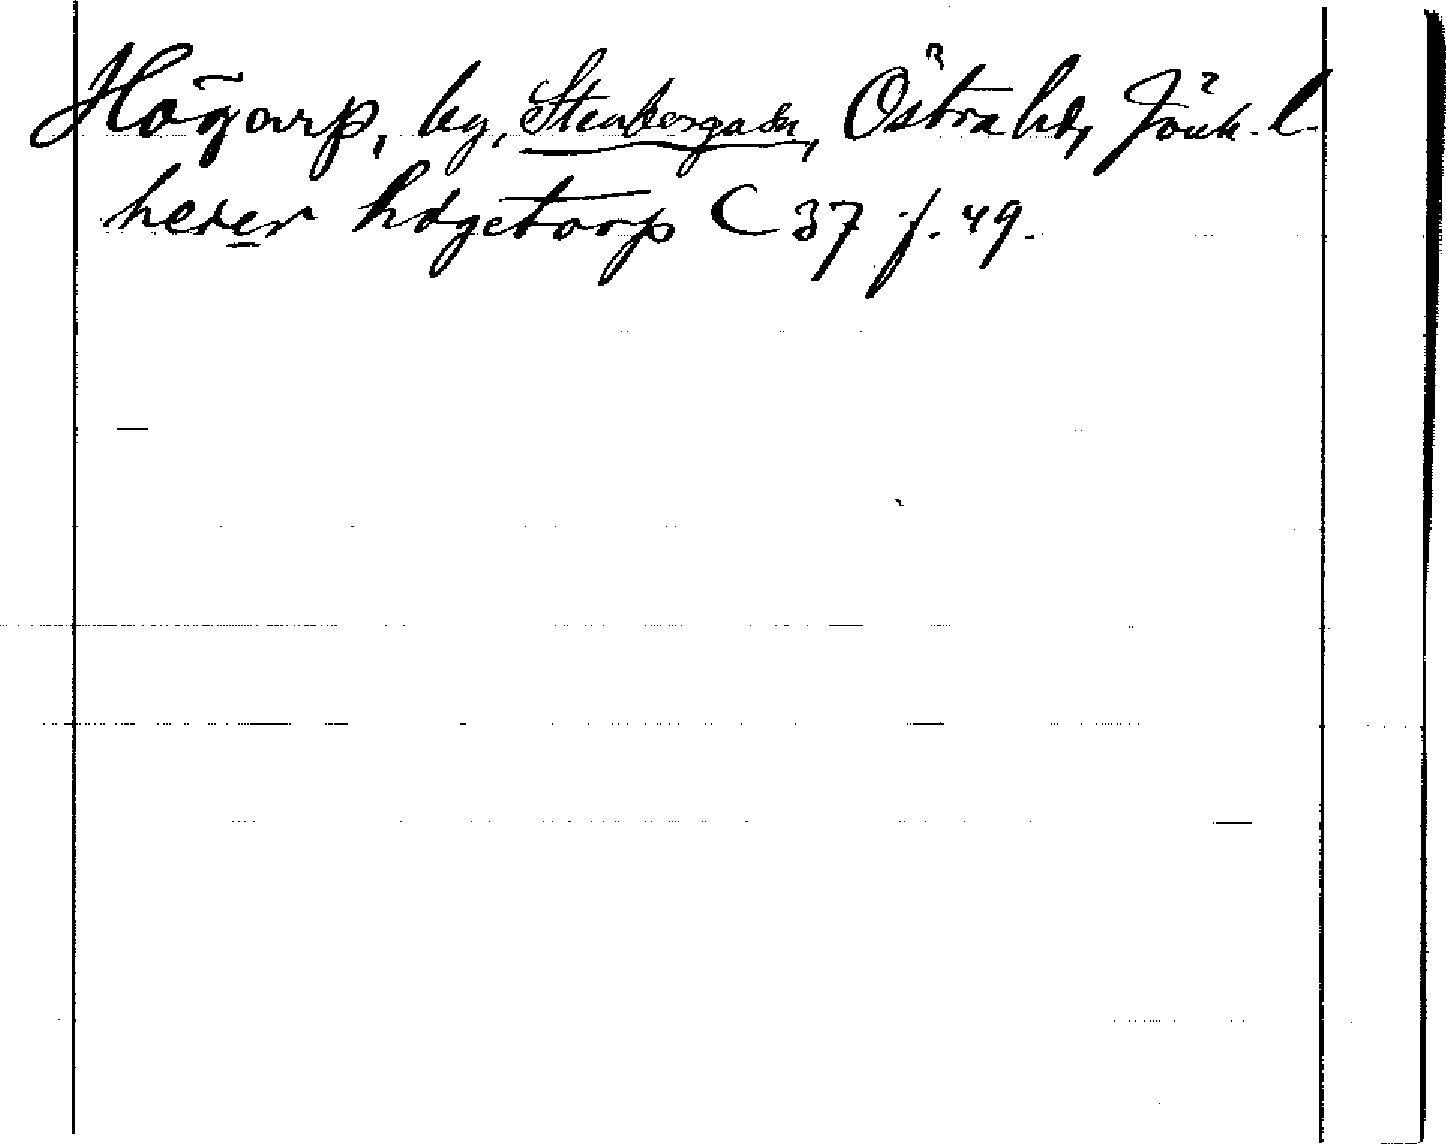 Högarp, by, Stenberga sn, Östra hd, Jönk. l.
heter högetorp C 37 f. 49.